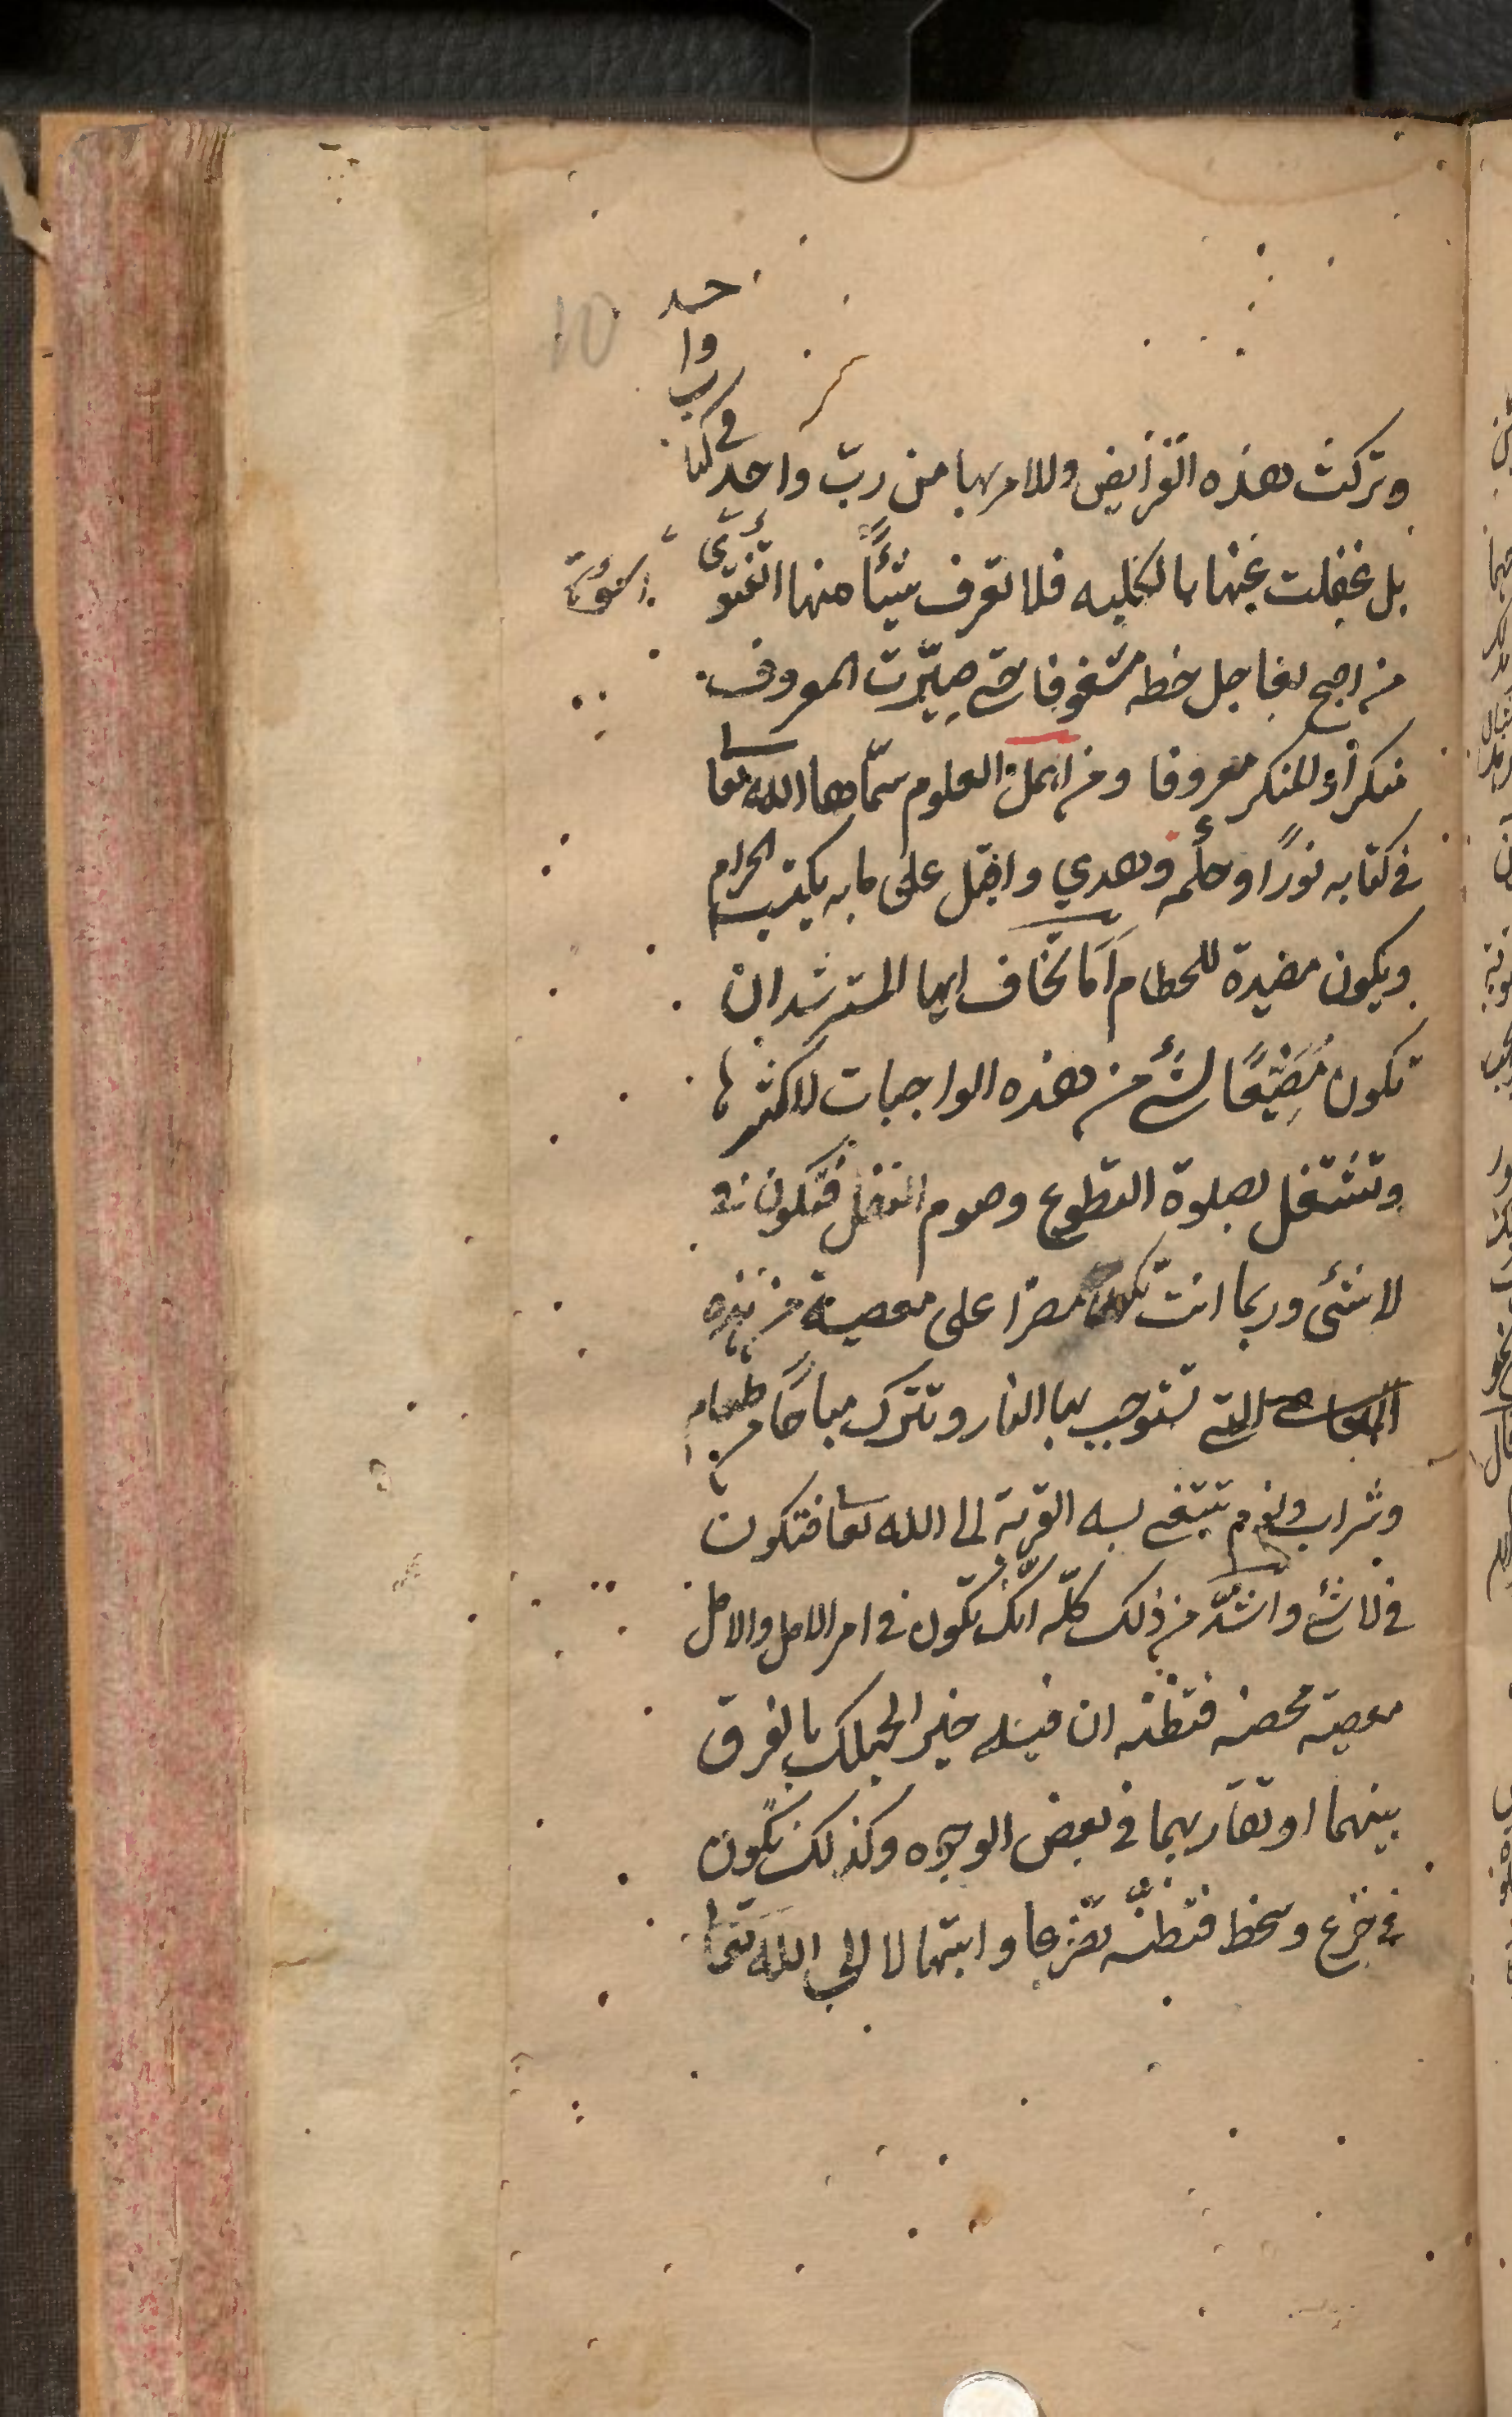 وتركت هذه الفرايض والامر بها من ربّ واحد في كتا
ب وا
حد
بل غفلت عنها بالكليه فلا تعرف شيئاً منها الفتوى
من اصبح لعاجل حظه مشغوفا حتى صيّرت المعروف
منكراً والمنكر معروفا ومن اهمل العلوم سمّاها الله تعا
في كتابه نورًا وحكمه وهدي واقبل على ما به يكتب الحرام
ويكون مصيدة للحطام اَمَا تخاف ايها المسترشد ان
تكون مُضَيِّعًا لشئ من هذه الواجبات لاكثرها
وتشتغل بصلوة التطوع وصوم النفل فتكون في
لا شئى وربما انت تكون مصرا على معصية من هذه
المعاصى التي تستوجب بها النار وتترك مباحًا من طعام
وشراب ونوم تبتغي به القربة الى الله تعا فتكون
في لا شئ واشدّ من ذلك كلّه انّك تكون في امر الامل والامل
معصية محضه فتظنه ان فيه خير الجهلك بالفرق
بينهما او تقاربهما في بعض الوجوه وكذلك تكون
في جزع وسخط فتظنّه تضرعا وابتهالا الى الله تعا